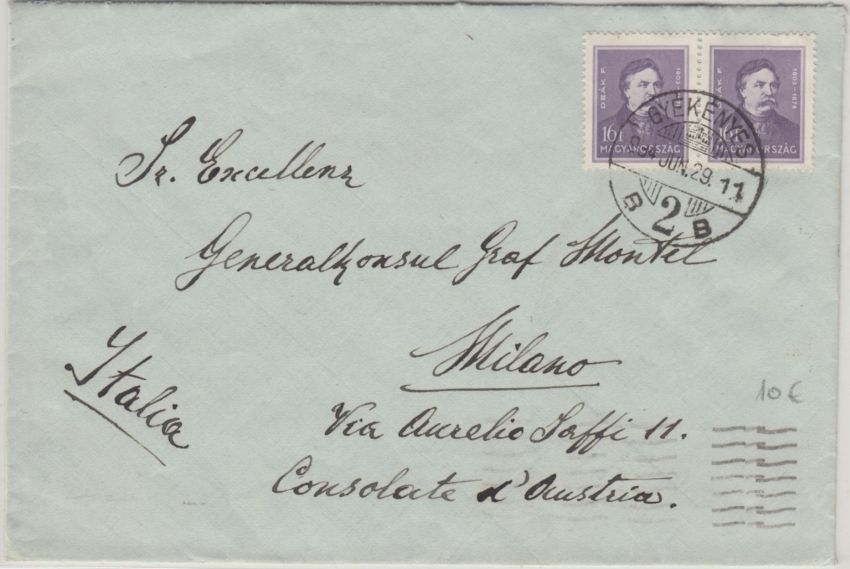 DEÁK F. 1803-1876
16f
MAGYARORSZÁG
DEÁK F. 1803-1876
16f
MAGYARORSZÁG
GYÉKÉNYES
34 JUN. 29. 11
B 2 B
Sr. Excellenz
Generalkonsul Graf Montel
Milano
Italia
Via Aurelio Saffi 11.
Consolate d'Austria.
10 €